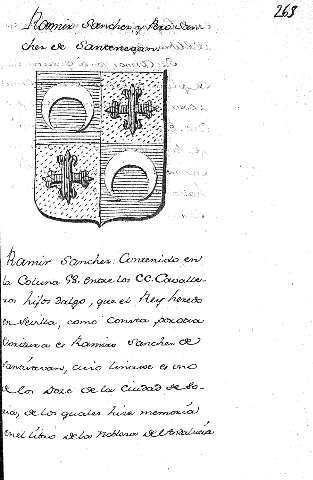 263
Ramir Sanchez y Pero San-
chez de Santestevan
Ramir Sanchez: Contenido en
la Coluna 98. entre los CC. Cavalle-
ros hijos dalgo, que el Rey heredo
en Sevilla, como consta, por otra
es Ramiro Sanchez de
Santistevan, cuio linaxe es uno
de los Doze de la Ciudad de So-
ria, de los quales hize memoria
en el libro de la Nobleza del Andalucía